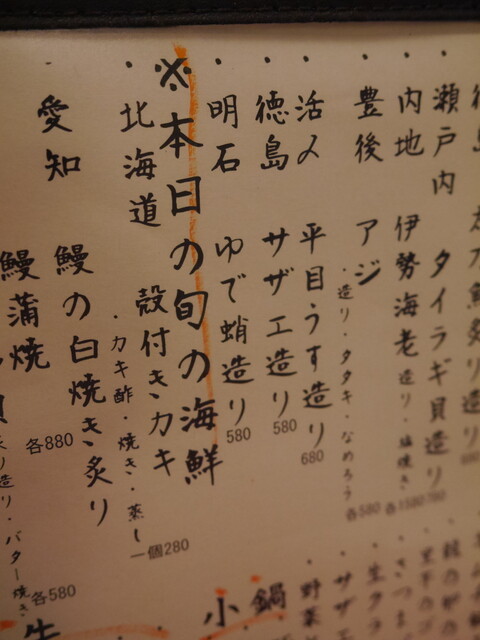 瀬戸内 タイラギ貝造り
内地 伊勢海老 造り・塩焼き 各1580
豊後 アジ ・造り・タタキ・なめろう 各580
活〆 平目うす造り 680
徳島 サザエ造り 580
明石 ゆで蛸造り 580
※本日の旬の海鮮
北海道 殻付き・カキ
・カキ酢・焼き・蒸し 一個280
愛知 鰻の白焼き・炙り
鰻蒲焼 各880
造り・バター焼き 各580
小鍋
野菜
サザ
生タラ
さつま
牛